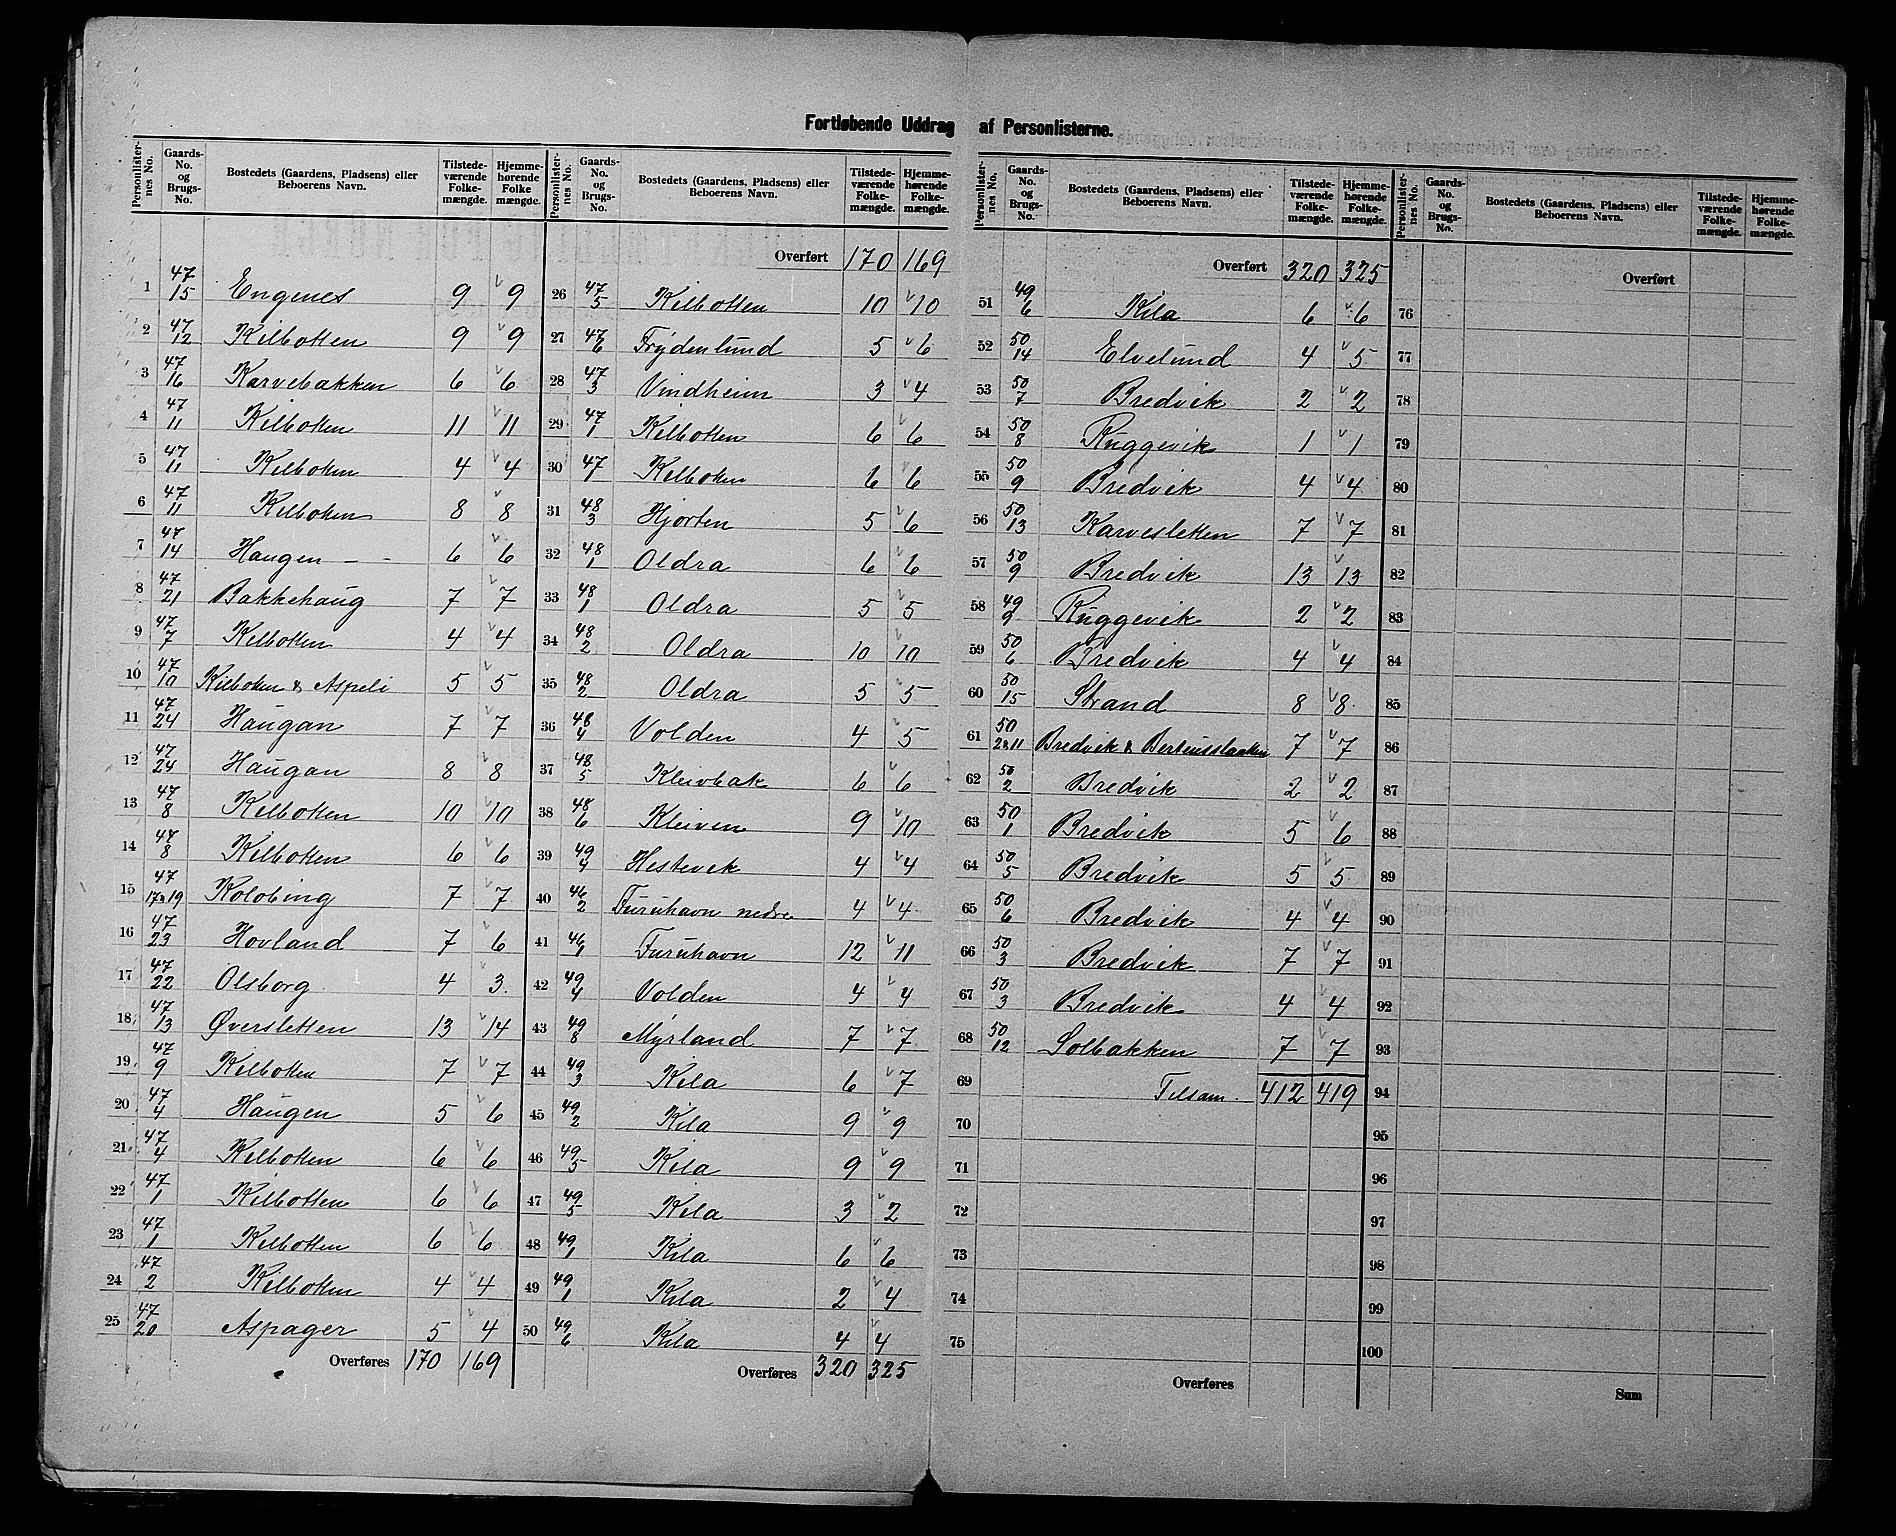 Fortløbende Uddrag af Personlisterne.
Personlister-nes No. | Gaards-No. og Brugs-No. | Bostedets (Gaardens, Pladsens) eller Beboerens Navn. | Tilstede-værende Folke-mængde. | Hjemme-hørende Folke mængde.
1 47/15 Engenes 9 v 9
2 47/12 Kilbotten 9 v 9
3 47/16 Karvebakken 6 v 6
4 47/11 Kilbotten 11 v 11
5 47/11 Kilboten 4 v 4
6 47/11 Kilboten 8 v 8
7 47/14 Haugen - - 6 v 6
8 47/21 Bakkehaug 7 v 7
9 47/7 Kilbotten 4 v 4
10 47/10 Kilboten & Aspeli 5 v 5
11 47/24 Haugan 7 v 7
12 47/24 Haugan 8 v 8
13 47/8 Kilbotten 10 v 10
14 47/8 Kilbotten 6 v 6
15 47/17&19 Kolobing 7 v 7
16 47/23 Hovland 7 v 6
17 47/22 Olsborg 4 v 3.
18 47/13 Øversletten 13 v 14
19 47/9 Kilboten 7 v 7
20 47/4 Haugen 5 v 6
21 47/4 Kilboten 6 v 6
22 47/1 Kilbotten 6 v 6
23 47/1 Kilbotten 6 v 6
24 47/2 Kilboten 4 v 4
25 47/20 Aspager 5 4
Overføres 170 169
Personlister-nes No. | Gaards-No. og Brugs-No. | Bostedets (Gaardens, Pladsens) eller Beboerens Navn. | Tilstede-værende Folke-mængde. | Hjemme-hørende Folke-mængde.
Overført 170 169
26 47/5 Kilbotten 10 v 10
27 47/6 Frydenlund 5 v 6
28 47/3 Vindheim 3 v 4
29 47/1 Kilbotten 6 v 6
30 47 Kilboten 6 v 6
31 48/3 Hjorten 5 v 6
32 48/1 Oldra 6 v 6
33 48/1 Oldra 5 v 5
34 48/2 Oldra 10 v 10
35 48/2 Oldra 5 v 5
36 48/4 Volden 4 v 5
37 48/5 Kleivbak 6 v 6
38 48/6 Kleiven 9 v 10
39 49/4 Hestevik 4 v 4
40 46/2 Furuhavn nedre 4 v 4
41 46/1 Furuhavn 12 v 11
42 49/4 Volden 4 v 4
43 49/8 Myrland 7 v 7
44 49/3 Kila 6 v 7
45 49/2 Kila 9 v 9
46 49/5 Kila 9 v 9
47 49/5 Kila 3 v 2
48 49/1 Kila 6 v 6
49 49/1 Kila 2 v 4
50 49/6 Kila 4 v 4
Overføres 320 325
Personlister-nes No. | Gaards-No. og Brugs-No. | Bostedets (Gaardens, Pladsens) eller Beboerens Navn. | Tilstede-værende Folke-mængde. | Hjemme-hørende Folke-mængde.
Overført 320 325
51 49/6 Kila 6 v 6
52 50/14 Elvelund 4 v 5
53 50/7 Bredvik 2 v 2
54 50/8 Ruggevik 1 v 1
55 50/9 Bredvik 4 v 4
56 50/13 Karvesletten 7 v 7
57 50/9 Bredvik 13 v 13
58 49/9 Ruggevik 2 v 2
59 50/6 Bredvik 4 v 4
60 50/15 Strand 8 v 8
61 50/2&11 Bredvik & 7 v 7
62 50/2 Bredvik 2 v 2
63 50/1 Bredvik 5 v 6
64 50/5 Bredvik 5 v 5
65 50/6 Bredvik 4 v 4
66 50/3 Bredvik 7 v 7
67 50/3 Bredvik 4 v 4
68 50/12 Solbakken 7 v 7
69 Tilsam. 412 419
70
71
72
73
74
75
Overføres
Personlister-nes No. | Gaards-No. og Brugs-No. | Bostedets (Gaardens, Pladsens) eller Beboerens Navn. | Tilstede-værende Folke-mængde. | Hjemme-hørende Folke-mængde.
Overført
76
77
78
79
80
81
82
83
84
85
86
87
88
89
90
91
92
93
94
95
96
97
98
99
100
Sum